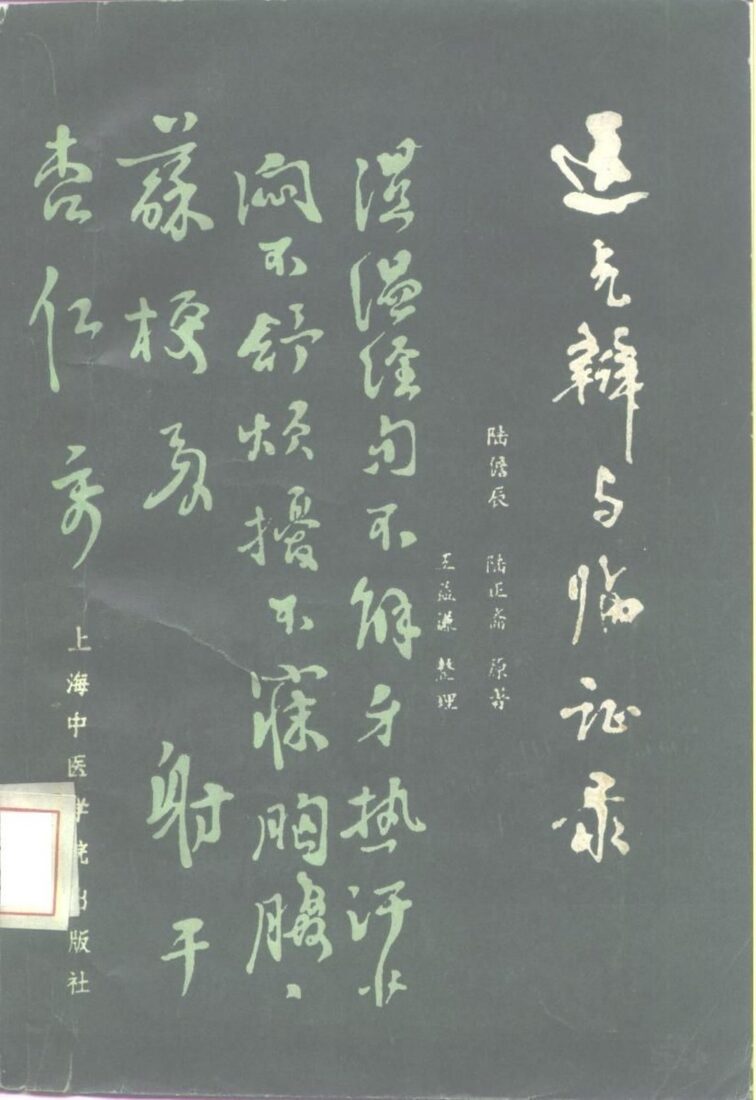 运气辩与临证录
陆儋辰 陆正斋 原著
王益谦 整理
湿温经旬不解身热汗少
闷不舒烦扰不寐胸腹
苏梗 射干
杏仁
上海中医学院出版社